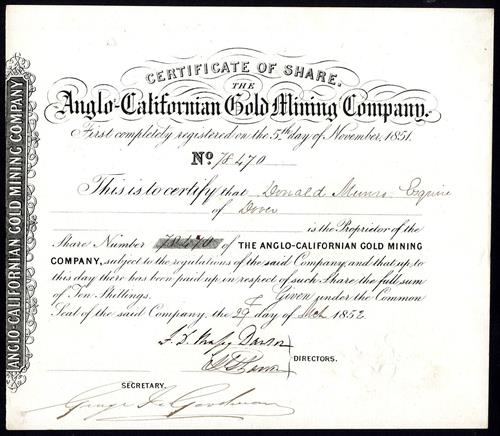 CERTIFICATE OF SHARE.
THE
Anglo-Californian Gold Mining Company.
First completely registered on the 5th day of November, 1851.
No 78470
This is to certify that Donald Munro Esquire
of Dover
is the Proprietor of the
Share Number 78470 of THE ANGLO-CALIFORNIAN GOLD MINING
COMPANY, subject to the regulations of the said Company, and that up to
this day there has been paid up in respect of such Share the full sum
of Ten Shillings. Given under the Common
Seal of the said Company, the 29 day of Mch 1852
DIRECTORS.
SECRETARY.
George
ANGLO-CALIFORNIAN GOLD MINING COMPANY